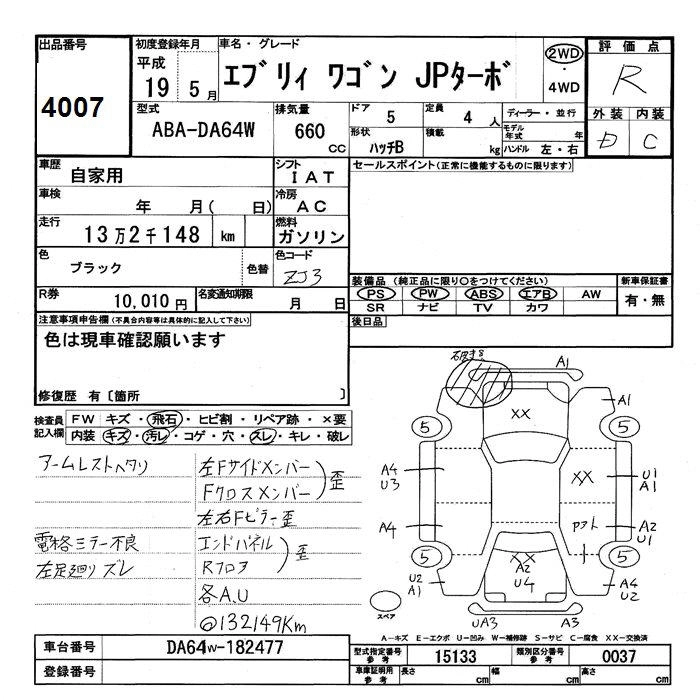 出品番号
4007
初度登録年月
平成
19 5月
車名・グレード
エブリィ ワゴン JPターボ
2WD
・
4WD
評価点
R
外装 内装
D C
型式
ABA-DA64W
排気量
660 CC
ドア 5
定員 4 人
ディーラー・並行
モデル年式 年
形状 ハッチB
積載 kg
ハンドル 左・右
車歴
自家用
シフト
IAT
セールスポイント(正常に機能するものに限ります)
車検
年 月( 日)
冷房
AC
走行
13万2千148 km
燃料
ガソリン
色
ブラック
色替
色コード
ZJ3
装備品(純正品に限り○をつけてください)
PS PW ABS エアB AW
SR ナビ TV カワ
新車保証書
有・無
R券
10,010円
名変通知期限
月 日
後日品
注意事項申告欄(不具合内容等は具体的に記入して下さい)
色は現車確認願います
修復歴 有〔箇所 〕
検査員記入欄
FW キズ・飛石・ヒビ割・リペア跡・×要
内装 キズ・汚レ・コゲ・穴・スレ・キレ・破レ
アームレストヘタリ
左Fサイドメンバー
Fクロスメンバー
歪
左右Fピラー歪
電格ミラー不良
エンドパネル
左足廻リズレ
Rフロア
歪
各A.U
@132149Km
A1
XX
A1
5
5
A4
U3
XX
U1
A1
A4
アト
A2
U1
5
XX
5
A2
U4
U2
A1
A4
U2
スペア
UA3
A3
A-キズ E-エクボ U-凹み W-補修跡 S-サビ C-腐食 XX-交換済
車台番号
DA64W-182477
登録番号
型式指定番号
参考
15133
類別区分番号
参考
0037
車庫証明用
参考
長さ cm
幅 cm
高さ cm